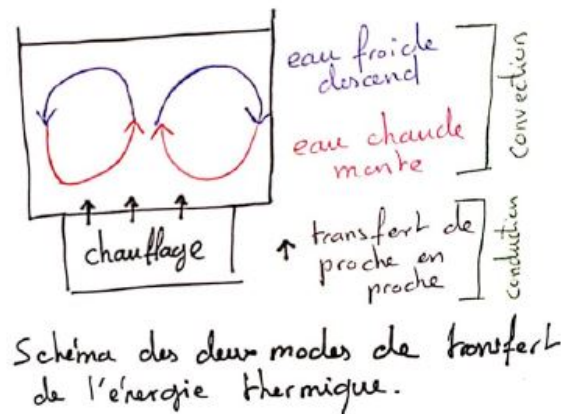 eau froide
descend
eau chaude
monte
convection
chauffage
transfert de
proche en
proche
conduction
Schéma des deux modes de transfert
de l'énergie thermique.